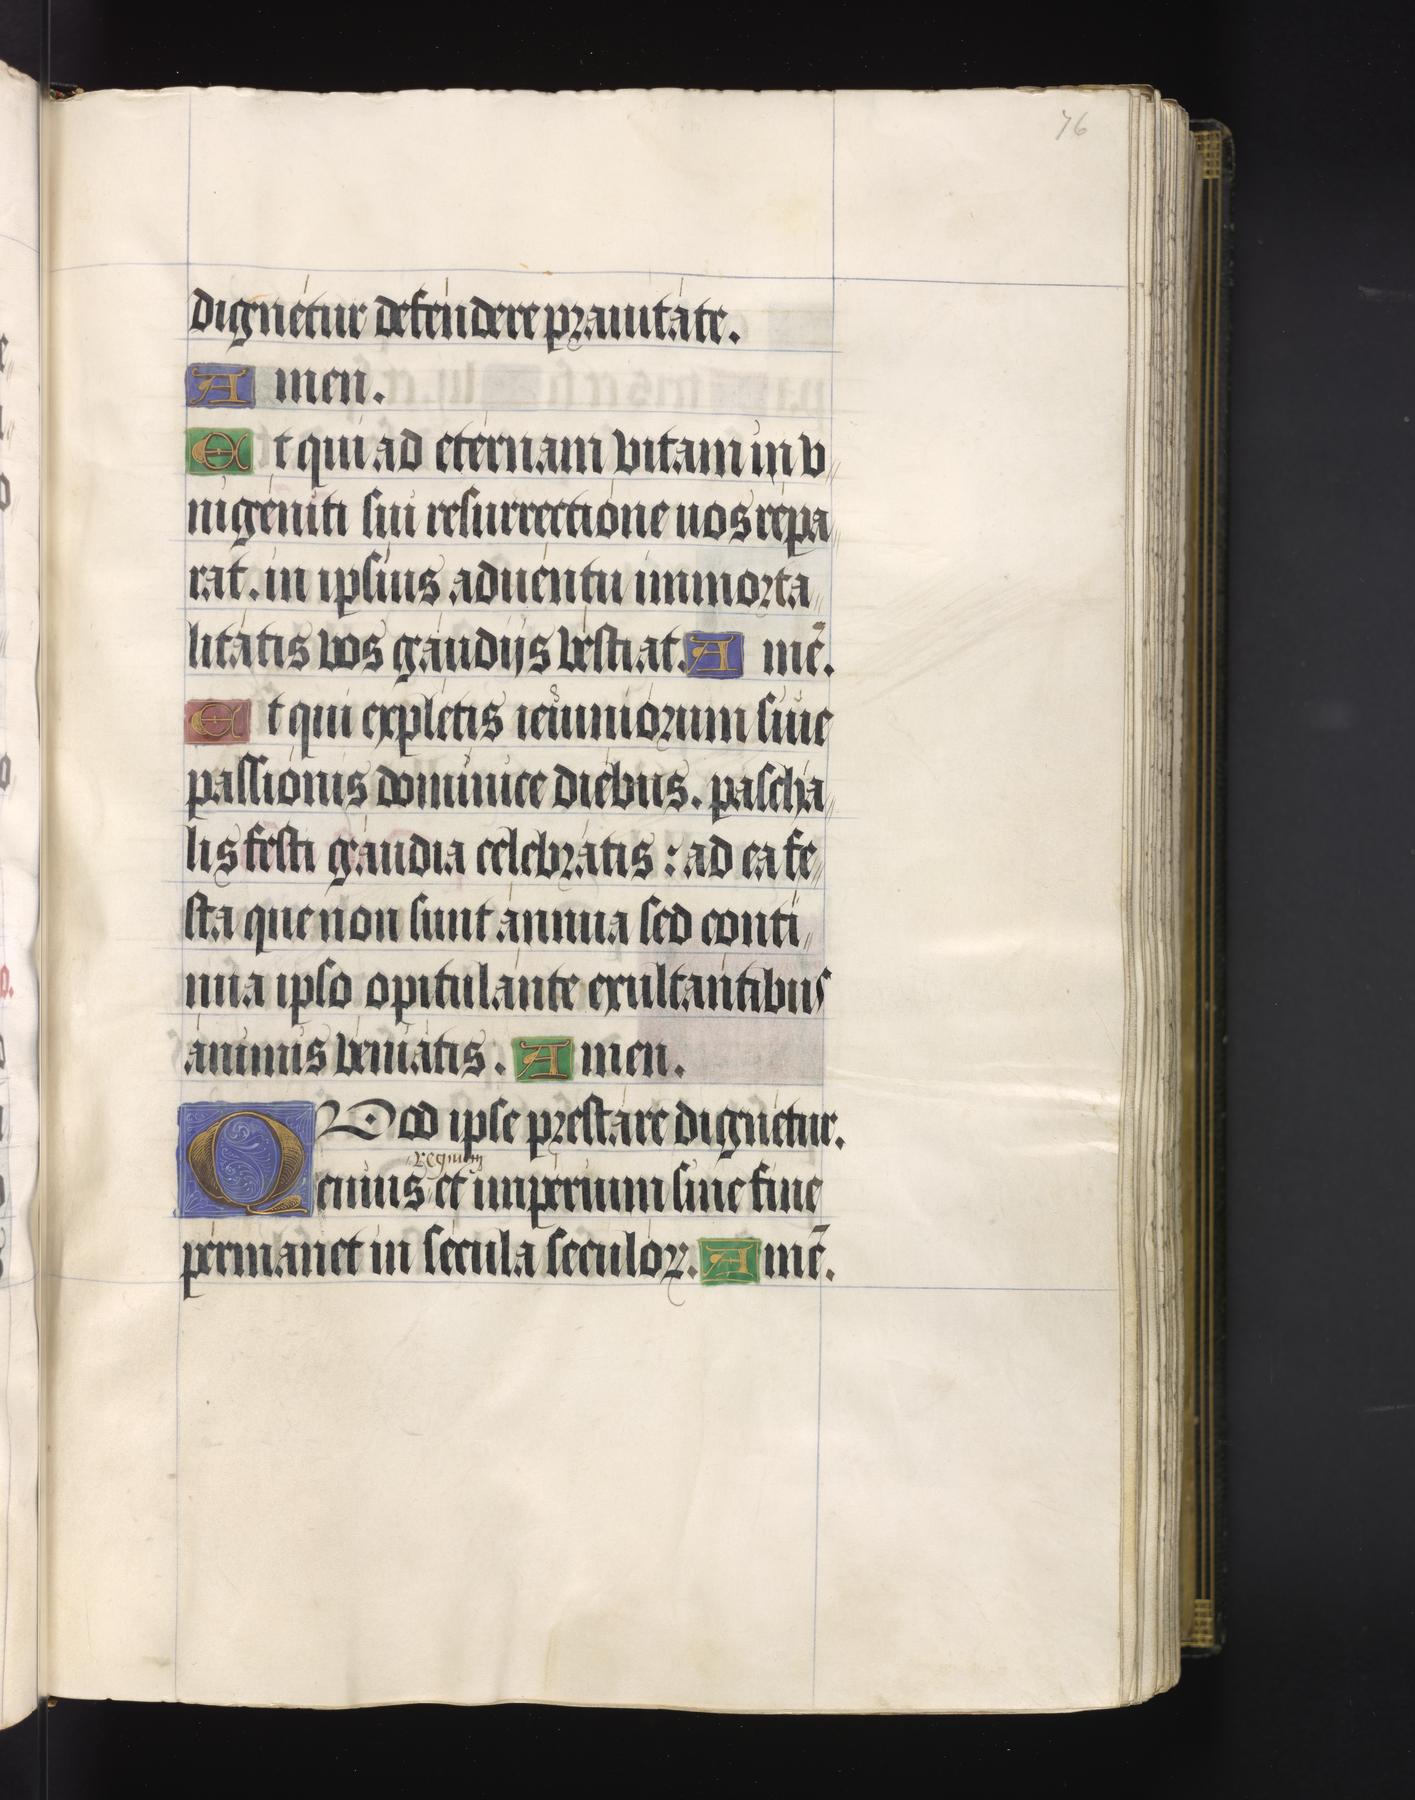 76
dignetur defendere prauitate.
Amen.
Et qui ad eternam vitam in v„
nigeniti sui resurrectione uos repa„
rat. in ipsius aduentu immorta„
litatis vos gaudijs vestiat. Amē.
Et qui expletis ieiuniorum siue
passionis dominice diebus. pascha„
lis festi gaudia celebratis : ad ea fe„
sta que non sunt annua sed conti„
nua ipso opitulante exultantibus
animis veniatis. Amen.
QVod ipse prestare dignetur.
regnum
cuius et imperium sine fine
permanet in secula seculoꝝ. Amē.